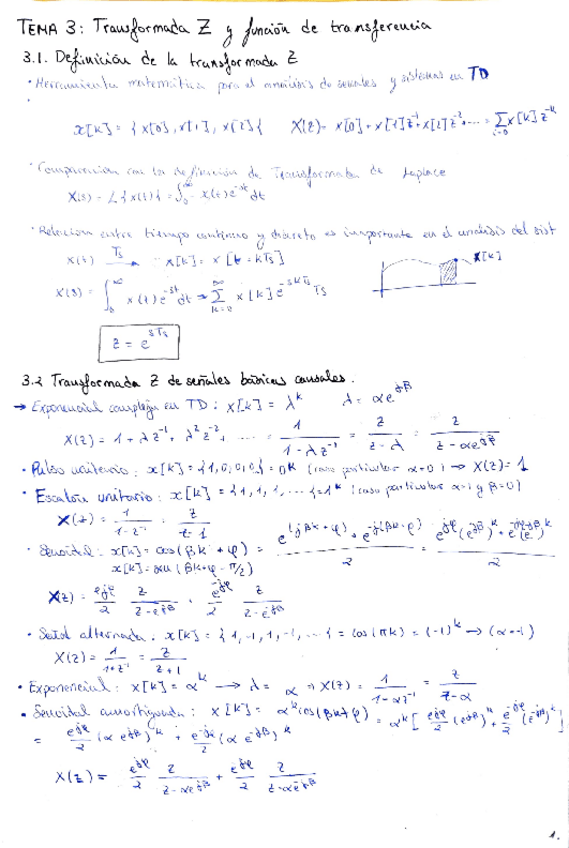 TEMA 3: Transformada Z y función de transferencia
3.1. Definición de la transformada Z
• Herramienta matemática para el análisis de señales y sistemas en TD
•
x[k] = {x[0], x[1], x[2]{ X(z) = x[0] + x[1]z⁻¹ + x[2]z⁻² + ... = Σ x[k] z⁻ᵏ
• Comparación con la definición de Transformada de Laplace
X(s) = L{x(t)} = ∫₀^∞ x(t)e^-st dt
• Relación entre tiempo continuo y discreto es importante en el análisis del sist
x(t) Ts → x[k] = x[t = kTs]
x[k]
X(s) = ∫₀^∞ x(t)e^-st dt → Σ x[k] e^-skTs Ts
z = e^sTs
3.2 Transformada Z de señales básicas causales.
→ Exponencial compleja en TD: x[k] = λᵏ λ = αe^jβ
X(z) = 1 + λz⁻¹ + λ²z⁻² + ... = 1/(1-λz⁻¹) = z/(z-λ) = z/(z-αe^jβ)
• Pulso unitario: x[k] = {1,0,0,0} = 0ᵏ (caso particular α=0) → X(z) = 1
• Escalón unitario: x[k] = {1,1,1,...}=1ᵏ (caso particular α=1 y β=0)
X(z) = 1/(1-z⁻¹) = z/(z-1)
• Senoidal: x[k] = cos(βk + φ) = (e^(jβk+φ) + e^-j(βk+φ))/2 = (e^jφ(e^jβ)^k + e^-jφ(e^-jβ)^k)/2
x[k] = sen(βk+φ-π/2)
X(z) = e^jφ/2 z/(z-e^jβ) + e^-jφ/2 z/(z-e^-jβ)
• Señal alternada: x[k] = {1,-1,1,-1,...} = cos(πk) = (-1)ᵏ → (α=-1)
X(z) = 1/(1+z⁻¹) = z/(z+1)
• Exponencial: x[k] = αᵏ → λ = α → X(z) = 1/(1-αz⁻¹) = z/(z-α)
• Senoidal amortiguada: x[k] = αᵏcos(βk+φ) = αᵏ[e^jφ/2 (e^jβ)^k + e^-jφ/2 (e^-jβ)^k]
= e^jφ/2 (αe^jβ)^k + e^-jφ/2 (αe^-jβ)^k
X(z) = e^jφ/2 z/(z-αe^jβ) + e^jφ/2 z/(z-αe^-jβ)
1.